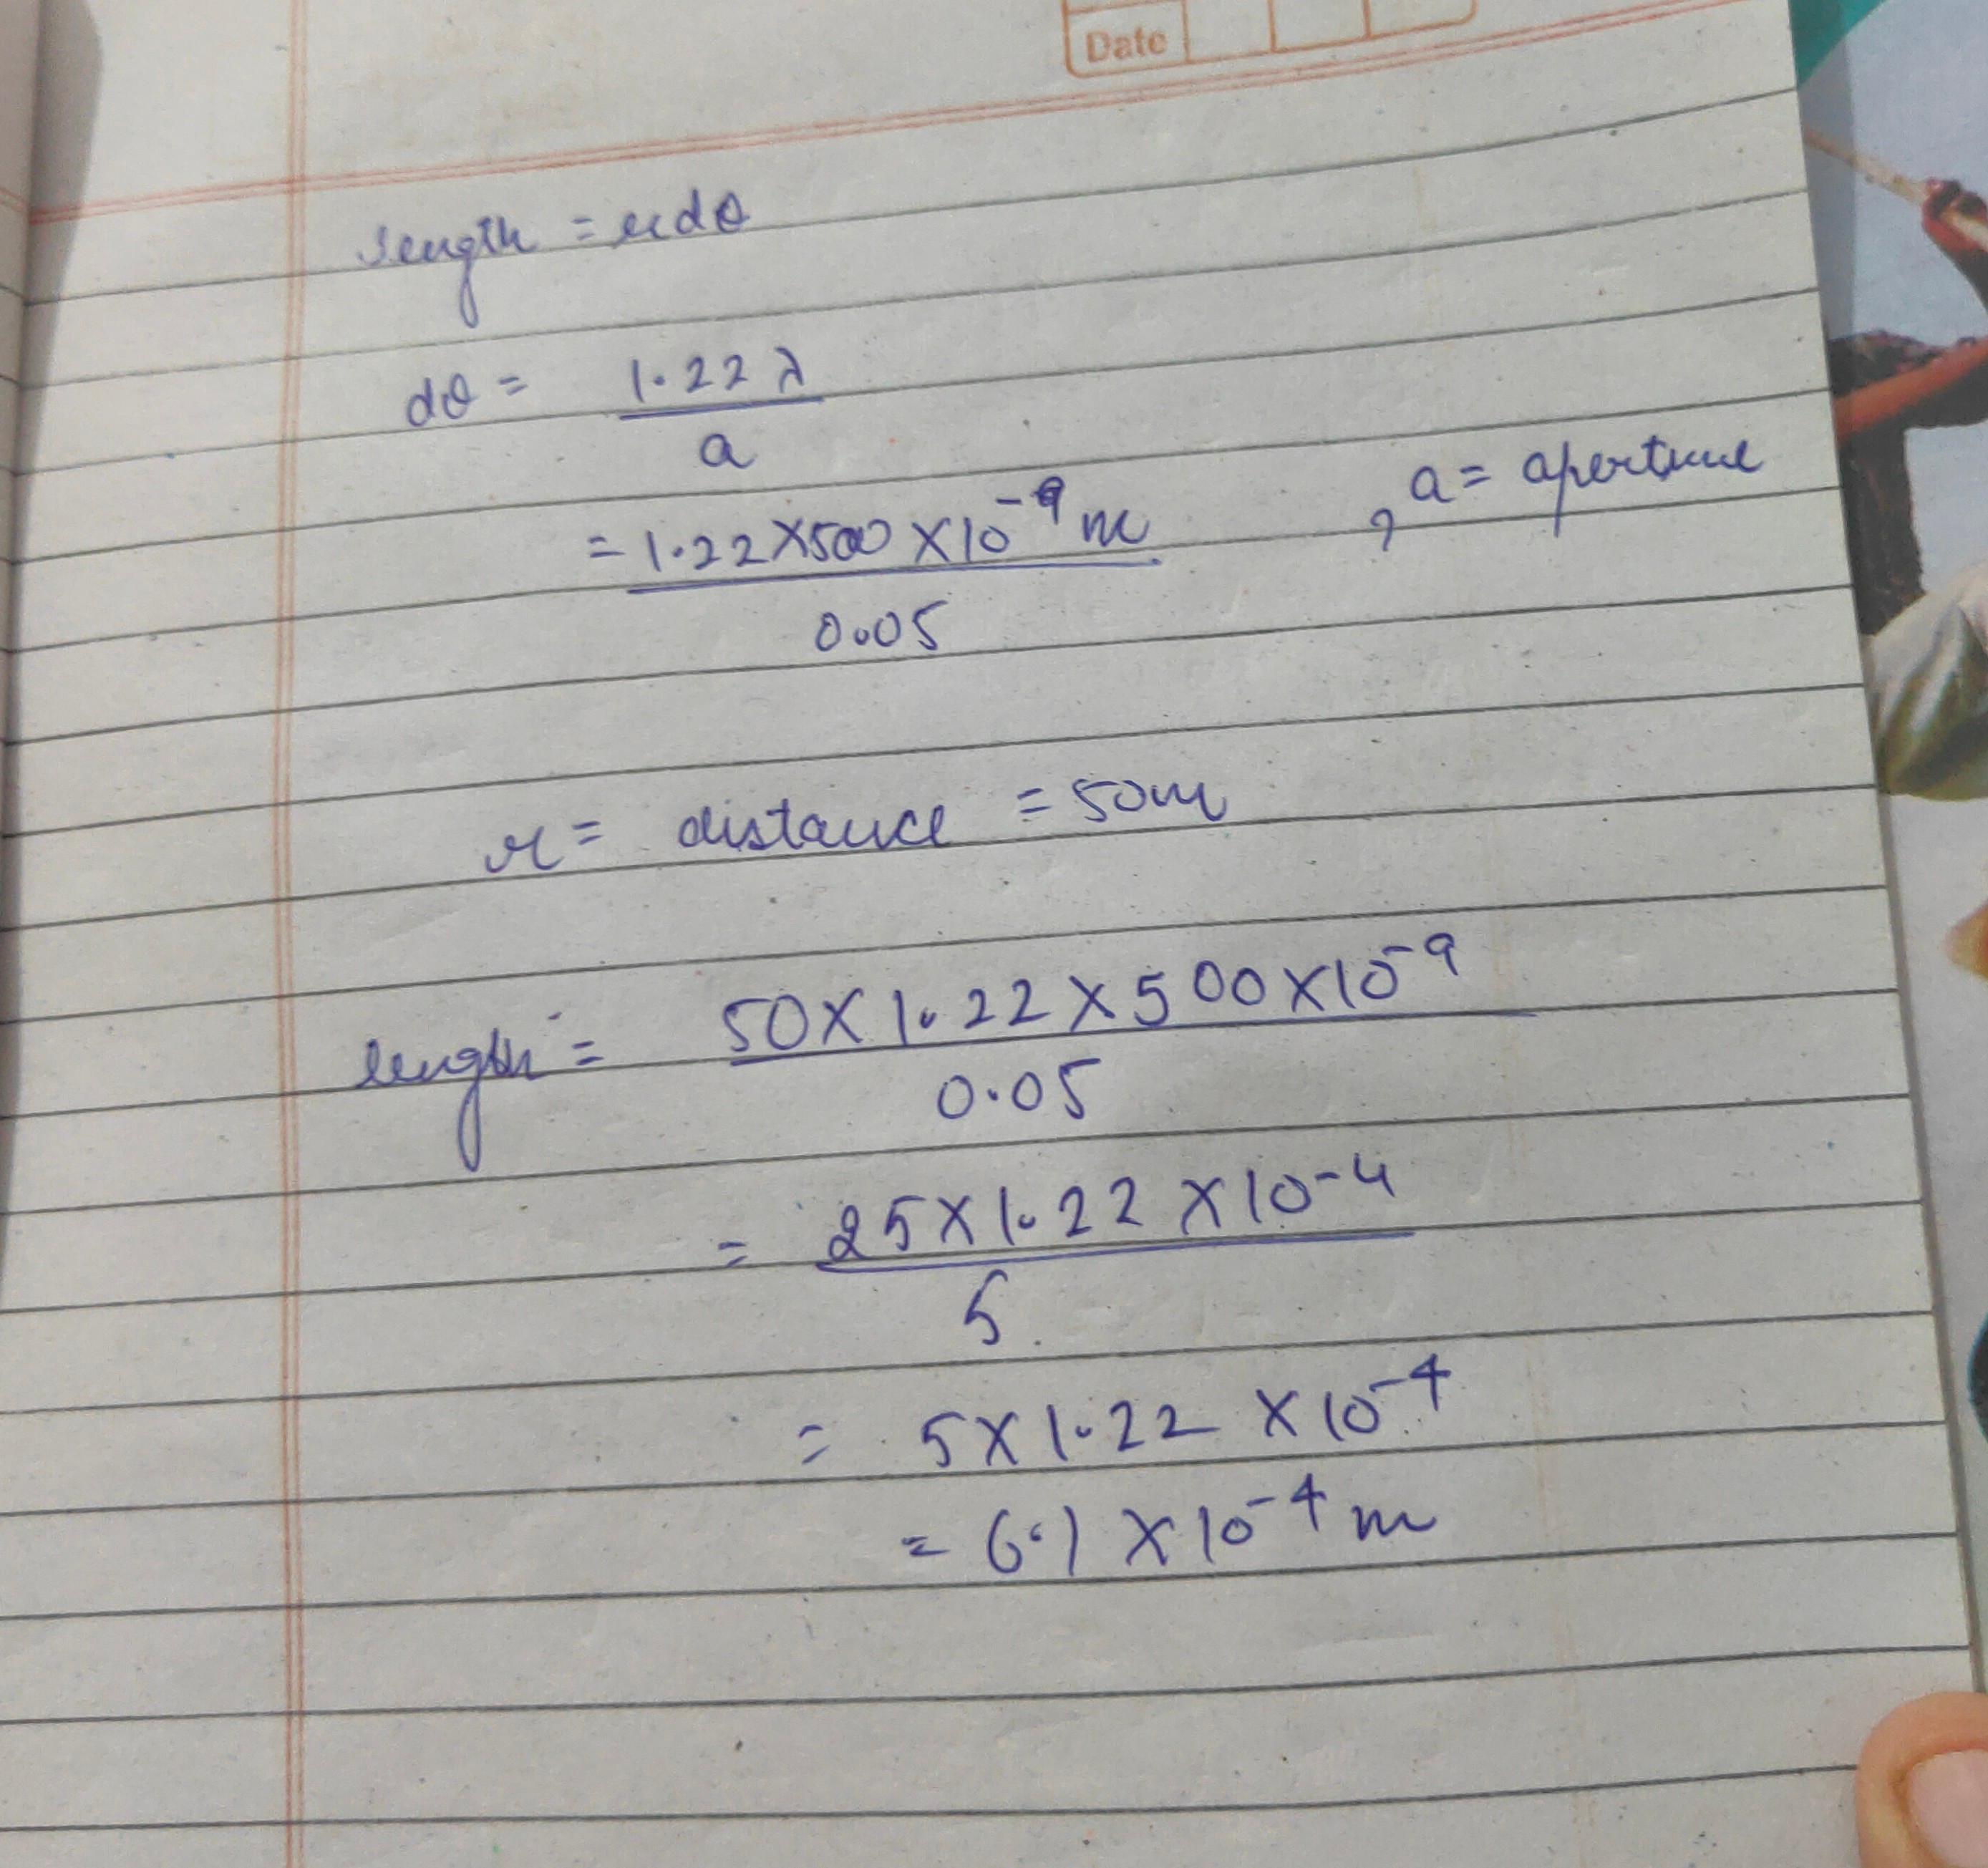 Date
length = rdθ
dθ = 1.22 λ
a
= 1.22 X 500 X 10⁻⁹ m , a = aperture
0.05
r = distance = 50m
length = 50 X 1.22 X 500 X 10⁻⁹
0.05
= 25 X 1.22 X 10⁻⁴
5
= 5 X 1.22 X 10⁻⁴
= 6.1 X 10⁻⁴ m